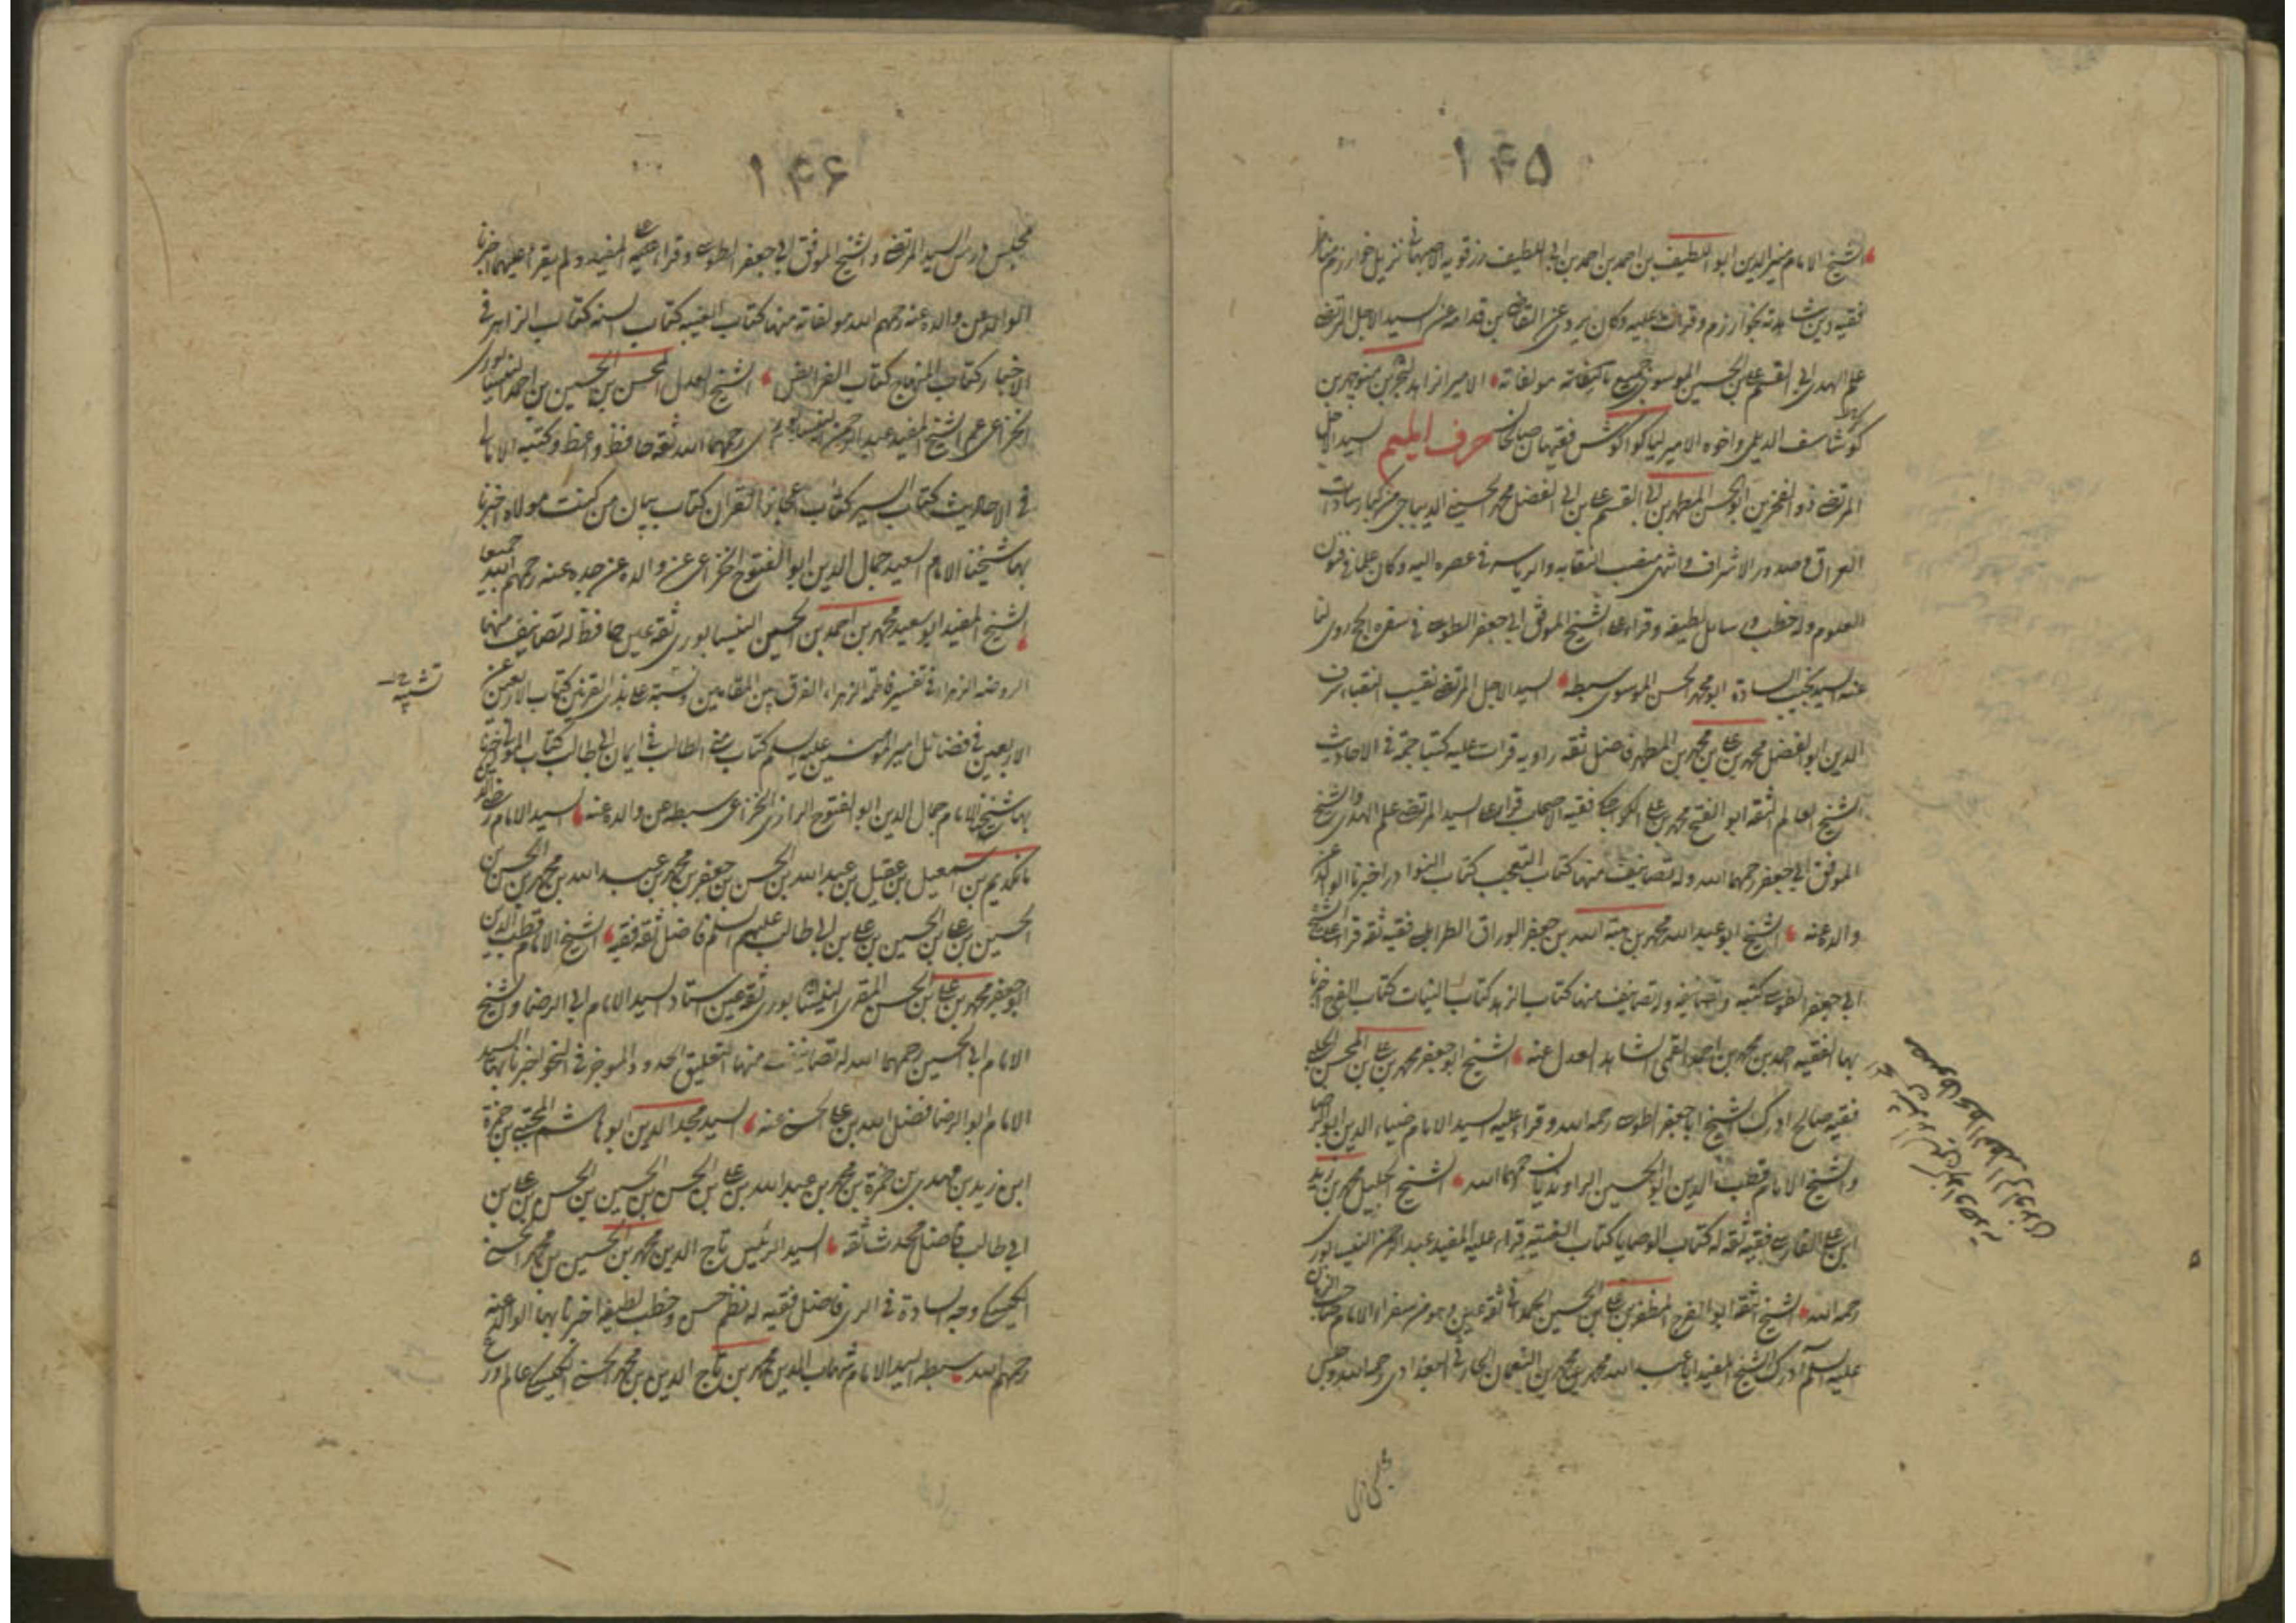 ١۴۵
الشيخ الامام منير الدين ابو اللطيف بن احمد بن احمد بن ابى اللطيف رزقويه الاصبهانى نزيل خوارزم مناظر
فقيه دين شاهدته بخوارزم وقرات عليه وكان يروى عن القاضى بن قدامه عن السيد الاجل المرتضى
علم الهدى ابى القسم على بن الحسين الموسوى جميع مولفاته الامير الزاهد لنجر بن منوجهر بن
كرشاسف الديلمى واخوه الامير لياكوا كوش فقيهان صالحان حرف الميم السيد الاجل
المرتضى ذو الفخرين ابو الحسن المطهر بن ابى القسم على بن ابى الفضل محمد الحسينى الديباجى من كبار سادات
العراق وصدور الاشراف وانتهى منصب النقابه والرياسه فى عصره اليه وكان علما فى فنون
العلوم وله خطب ورسايل لطيفه وقرا على الشيخ الموفق ابى جعفر الطوسى فى سفره الحج روى لنا
عنه السيد نجيب السادة ابو محمد الحسن الموسوى سبطه السيد الاجل المرتضى نقيب النقباء شرف
الدين ابو الفضل محمد بن على بن محمد بن المطهر فاضل ثقه راويه قرات عليه كتبا جمة فى الاحاديث
الشيخ العالم الثقه ابو الفتح محمد بن على الكراجكى فقيه الاصحاب قرا على السيد المرتضى علم الهدى والشيخ
الموفق ابى جعفر رحمهما الله وله تصانيف منها كتاب التعجب كتاب النوادر اخبرنا الوالد عن
والده عنه الشيخ ابو عبد الله محمد بن هبة الله بن جعفر الوراق الطرابلسى فقيه ثقه قرا على الشيخ
ابى جعفر الطوسى كتبه وتصانيفه وله تصانيف منها كتاب الزهد كتاب النيات كتاب الفرج اخبرنا
بها الفقيه احمد بن محمد بن احمد القمى الشاهد العدل عنه الشيخ ابو جعفر محمد بن على بن المحسن الحلبى
فقيه صالح ادرك الشيخ ابا جعفر الطوسى رحمه الله وقرا عليه السيد الامام ضياء الدين ابو الرضا
والشيخ الامام قطب الدين ابو الحسين الراونديان رحمهما الله الشيخ الجليل محمد بن زيد
ابن على الفارسى فقيه ثقه له كتاب الوصايا كتاب الغيبه قرا عليه المفيد عبد الرحمن النيسابورى
رحمه الله الشيخ الثقه ابو الفرج المظفر بن على بن الحسين الحمدانى ثقه عين وهو من سفراء الامام صاحب الزمان
عليه السلم ادرك الشيخ المفيد ابا عبد الله محمد بن محمد بن النعمان الحارثى البغدادى رحمه الله وجلس
مجلس درس
١۴۶
مجلس درس السيد المرتضى والشيخ الموفق ابى جعفر الطوسى وقرا على المفيد ولم يقرا عليهما اخبرنا
الوالد عن والده عنه رحمهم الله مولفاته منها كتاب الغيبه كتاب السنه كتاب الزاهر فى
الاخبار كتاب المنهاج كتاب الفرائض الشيخ العدل المحسن بن الحسين بن احمد النيسابورى
الخزاعى عم الشيخ المفيد عبد الرحمن النيسابورى رحمهما الله ثقه حافظ واعظ وكتبه الامالى
فى الاحاديث كتاب السير كتاب اعجاز القران كتاب بيان من كنت مولاه اخبرنا
بها شيخنا الامام السعيد جمال الدين ابو الفتوح الخزاعى عن والده عن جده عنه رحمهم الله جميعا
الشيخ المفيد ابو سعيد محمد بن احمد بن الحسين النيسابورى ثقه عين حافظ له تصانيف منها
الروضه الزهراء فى تفسير فاطمه الزهراء الفرق بين المقامين وتشبيه على بذى القرنين كتاب الاربعين عن
الاربعين فى فضائل امير المومنين عليه السلم كتاب منى الطالب فى ايمان ابى طالب كتاب المولى اخبرنا
بها شيخنا الامام جمال الدين ابو الفتوح الرازى الخزاعى سبطه عن والده عنه السيد الامام رضى الدين
مانكديم بن اسمعيل بن عقيل بن عبد الله بن الحسن بن جعفر بن محمد بن عبد الله بن محمد بن الحسن بن
الحسين بن على بن الحسين بن على بن ابى طالب عليهم السلم فاضل ثقه فقيه الشيخ الامام قطب الدين
ابو جعفر محمد بن على بن الحسن المقرى النيسابورى ثقه عين استاد السيد الامام ابى الرضا والشيخ
الامام ابى الحسين رحمهما الله له تصانيف منها التعليق الحدود الموجز فى النحو اخبرنا بها السيد
الامام ابو الرضا فضل الله بن على الحسنى عنه السيد مجد الدين ابو هاشم المجتبى بن حمزة
ابن زيد بن مهدى بن حمزة بن محمد بن عبد الله بن على بن الحسن بن الحسين بن الحسن بن على بن
ابى طالب فاضل محدث ثقه السيد الرئيس تاج الدين محمد بن الحسين بن محمد الحسنى
الكيسكى وجه السادة فى الرى فاضل فقيه له نظم حسن وخطب لطيفه اخبرنا بها الوالد عنه
رحمهم الله سبطه السيد الامام شهاب الدين محمد بن تاج الدين بن محمد الحسنى الكيسكى عالم ورع
تشبيه